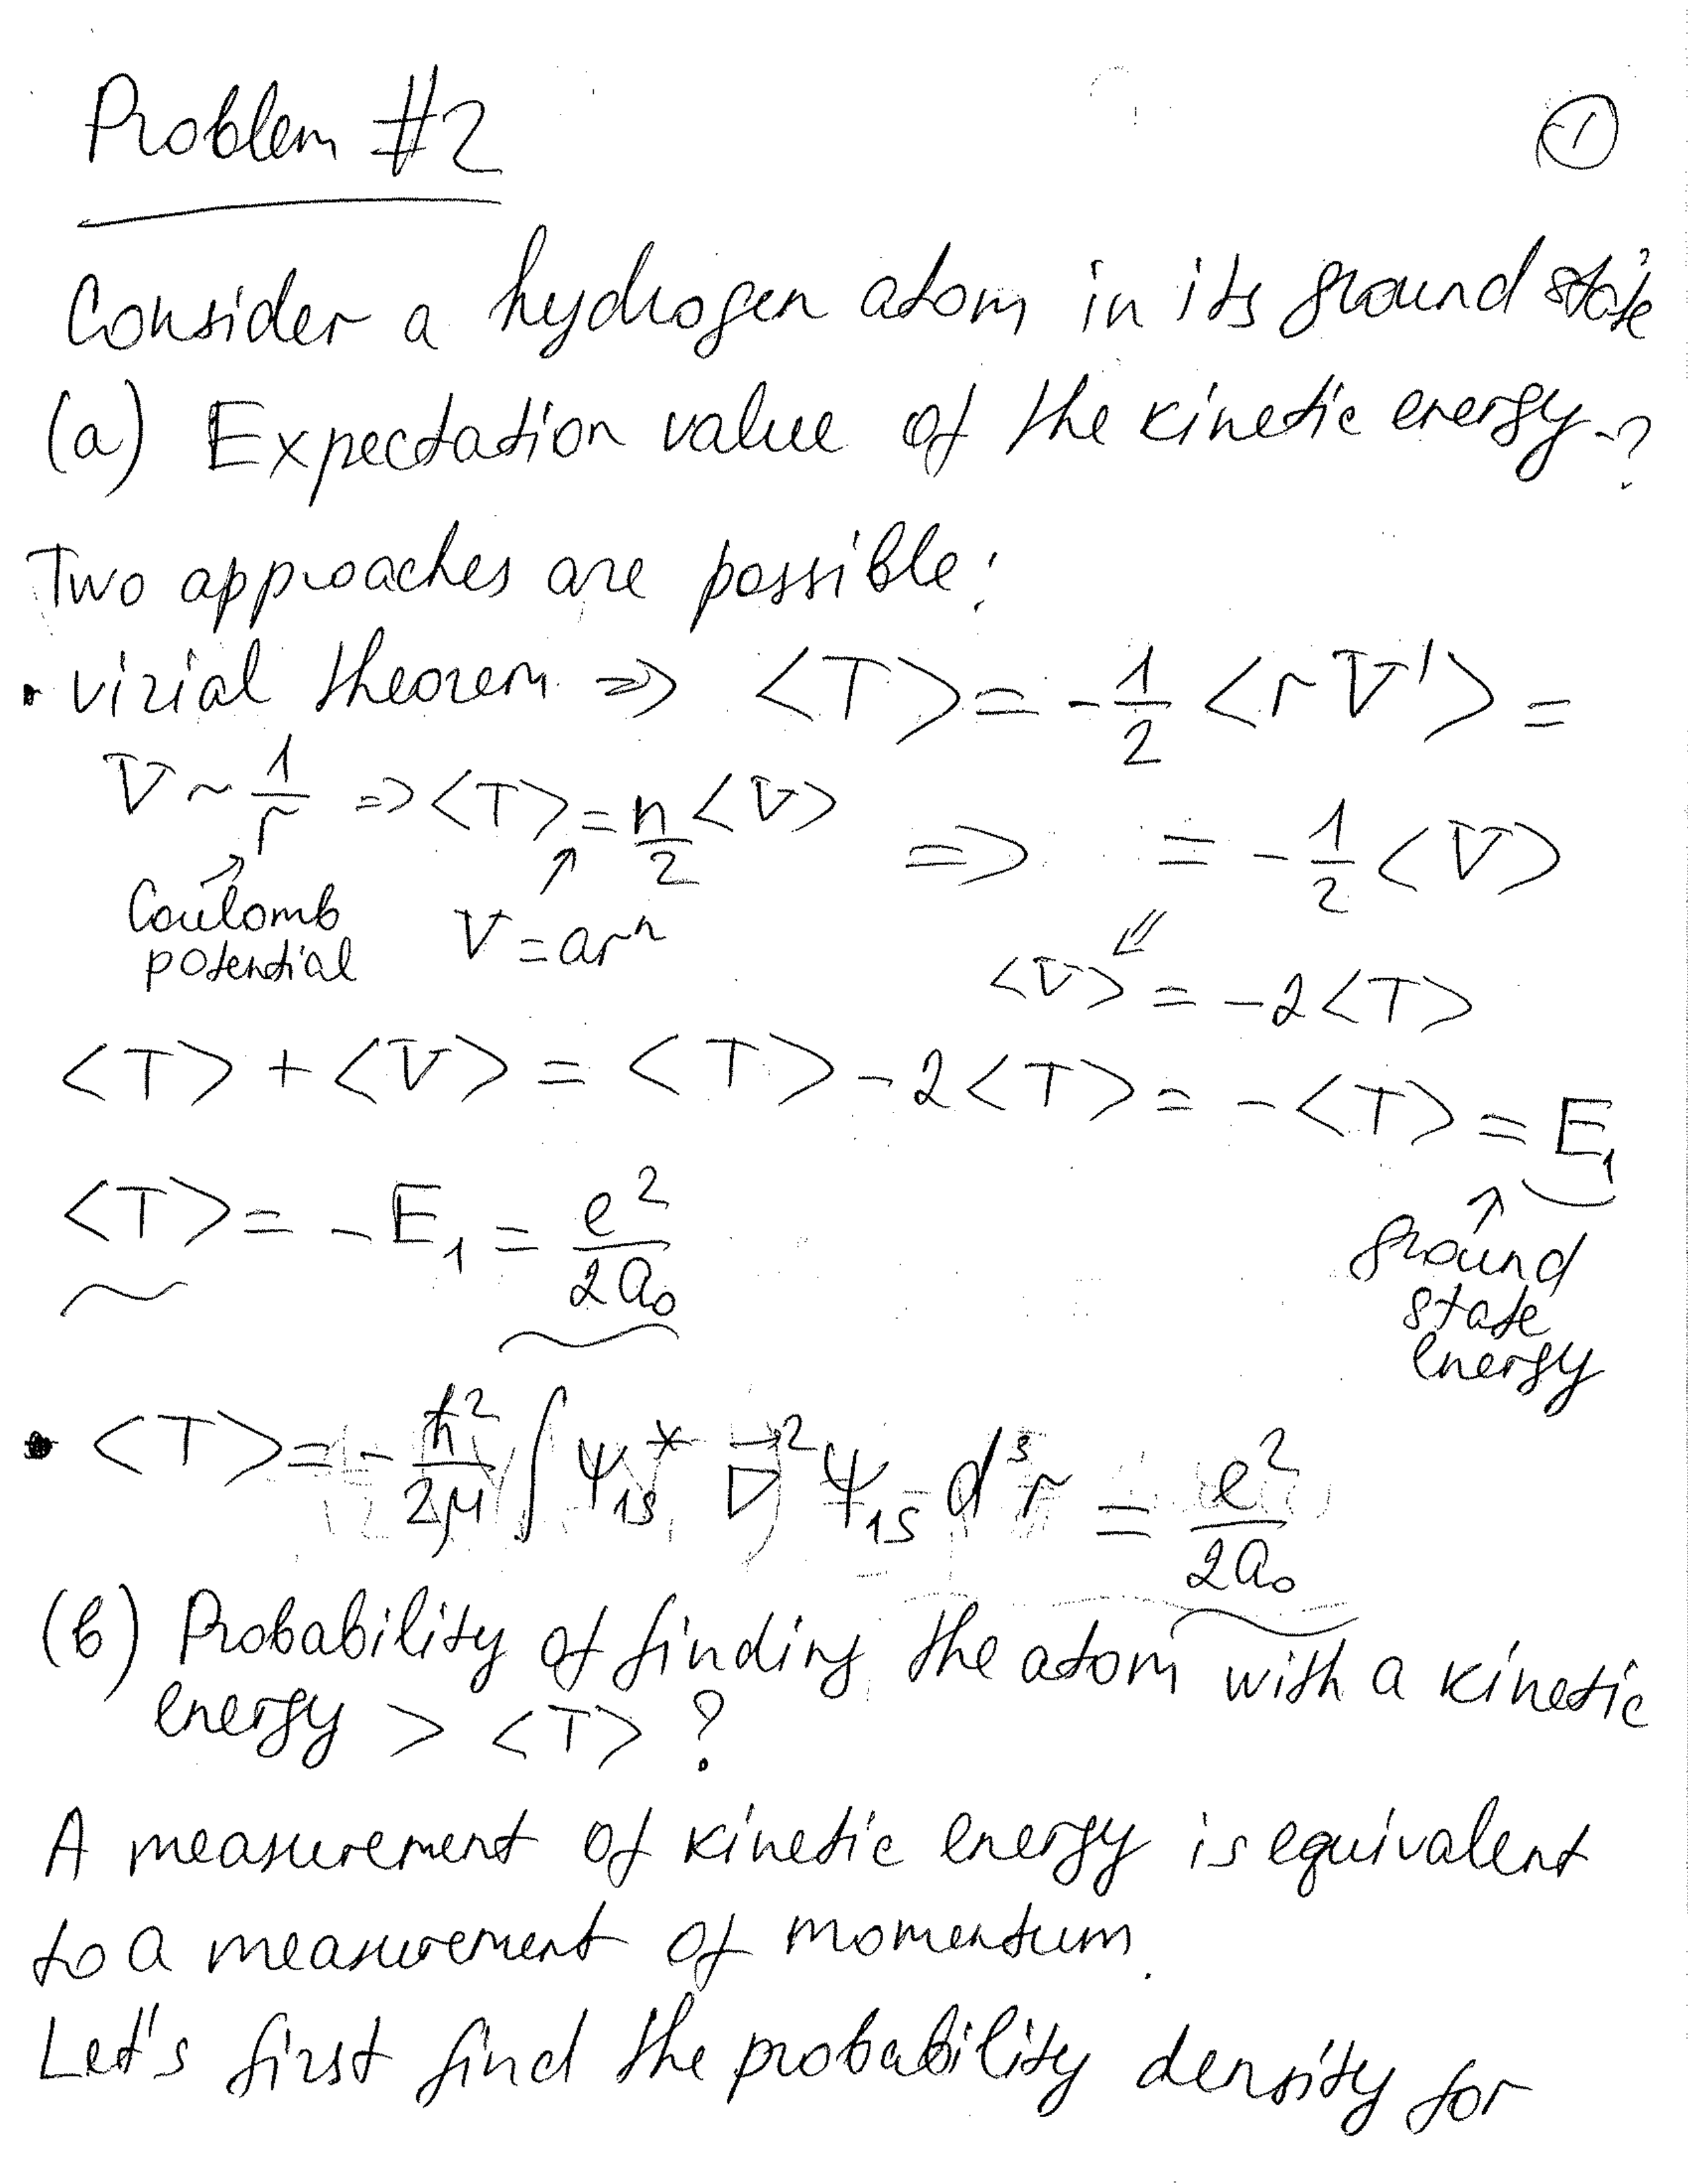 Problem #2
1
Consider a hydrogen atom in its ground state
(a) Expectation value of the kinetic energy-?
Two approaches are possible:
• virial theorem => <T> = -1/2 <r V'> =
V ~ 1/r => <T> = n/2 <V> => = -1/2 <V>
Coulomb potential
V = ar^n
<V> = -2<T>
<T> + <V> = <T> - 2<T> = -<T> = E₁
<T> = -E₁ = e²/2a₀
ground
state
energy
• <T> = -ħ²/2μ ∫ ψ₁s* ∇⃗² ψ₁s d³r = e²/2a₀
(b) Probability of finding the atom with a kinetic
energy > <T> ?
A measurement of kinetic energy is equivalent
to a measurement of momentum.
Let's first find the probability density for